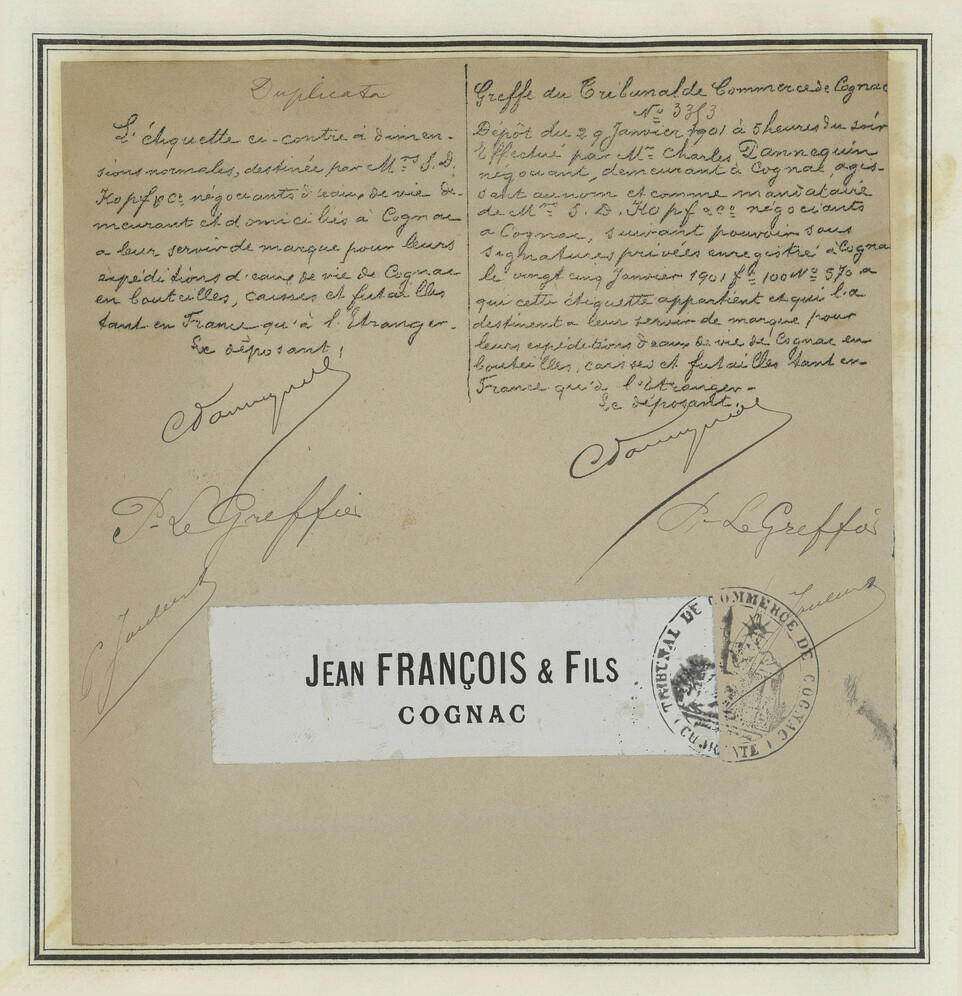 Duplicata
L'étiquette ci-contre à dimen-
sions normales, destinée par Mrs S. D.
Kopf & Co négociants d'eaux de vie de-
meurant et domiciliés à Cognac
a leur servir de marque pour leurs
expéditions d'eaux de vie de Cognac
en bouteilles, caisses et futailles
tant en France qu'à l'Etranger.
Le déposant,
P. Le Greffier
Greffe du Tribunal de Commerce de Cognac
No 3353
Dépôt du 29 Janvier 1901 à 5 heures du soir
Effectué par Mr Charles Dannequin
négociant, demeurant à Cognac, agis-
sant au nom et comme mandataire
de Mrs S. D. Kopf & Co négociants
a Cognac, suivant pouvoir sous
signatures privées enregistré à Cognac
le vingt cinq Janvier 1901 fo 100 No 570 a
qui cette étiquette appartient et qui l'a
destinent a leur servir de marque pour
leurs expéditions d'eaux de vie de Cognac en
bouteilles, caisses et futailles tant en
France qu'à l'étranger-
Le déposant.
Pr Le Greffier
JEAN FRANÇOIS & FILS
COGNAC
TRIBUNAL DE COMMERCE DE COGNAC
(CHARENTE)